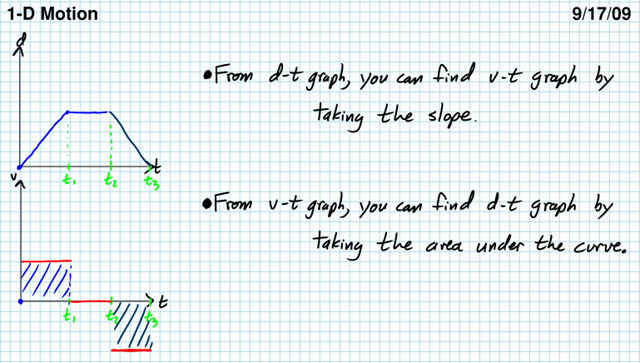 1-D Motion 9/17/09
d
• From d-t graph, you can find v-t graph by
taking the slope.
t
t₁ t₂ t₃
v
• From v-t graph, you can find d-t graph by
taking the area under the curve.
t
t₁ t₂ t₃